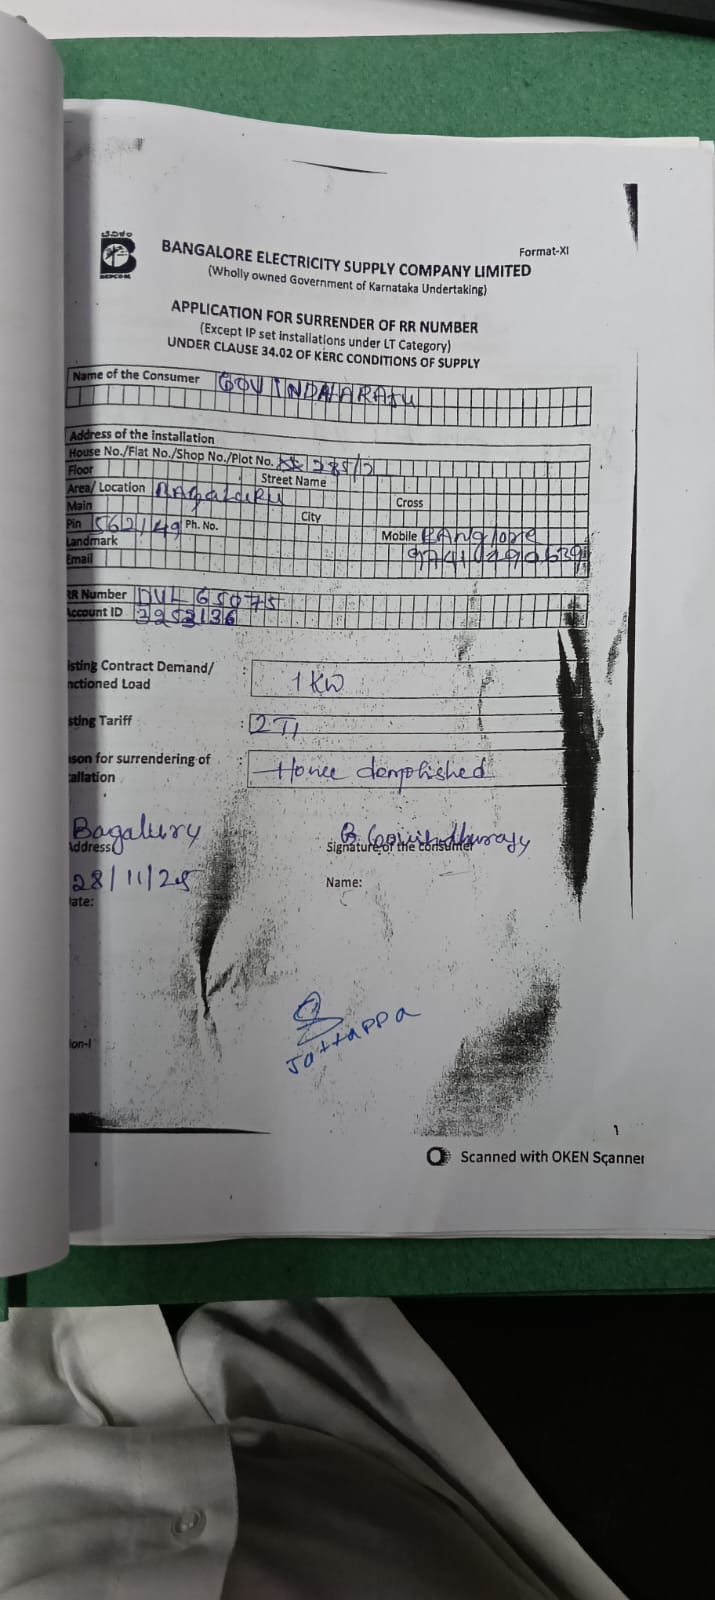 ಬೆವಿಕಂ
BESCOM
Format-XI
BANGALORE ELECTRICITY SUPPLY COMPANY LIMITED
(Wholly owned Government of Karnataka Undertaking)
APPLICATION FOR SURRENDER OF RR NUMBER
(Except IP set installations under LT Category)
UNDER CLAUSE 34.02 OF KERC CONDITIONS OF SUPPLY
Name of the Consumer GOVINDAHARAJU
Address of the installation
House No./Flat No./Shop No./Plot No. 285/2
Floor Street Name
Area/ Location BAgaluru Cross
Main City
Pin 562149 Ph. No. Mobile BAnglore
Landmark
Email
RR Number 65075
Account ID
isting Contract Demand/
nctioned Load : 1 KW
sting Tariff :
son for surrendering of
allation : House domplished
Bagalury
Address
Signature of the consumer
28/11/25
ate:
Name:
Jattappa
ion-I
1
Scanned with OKEN Scanner